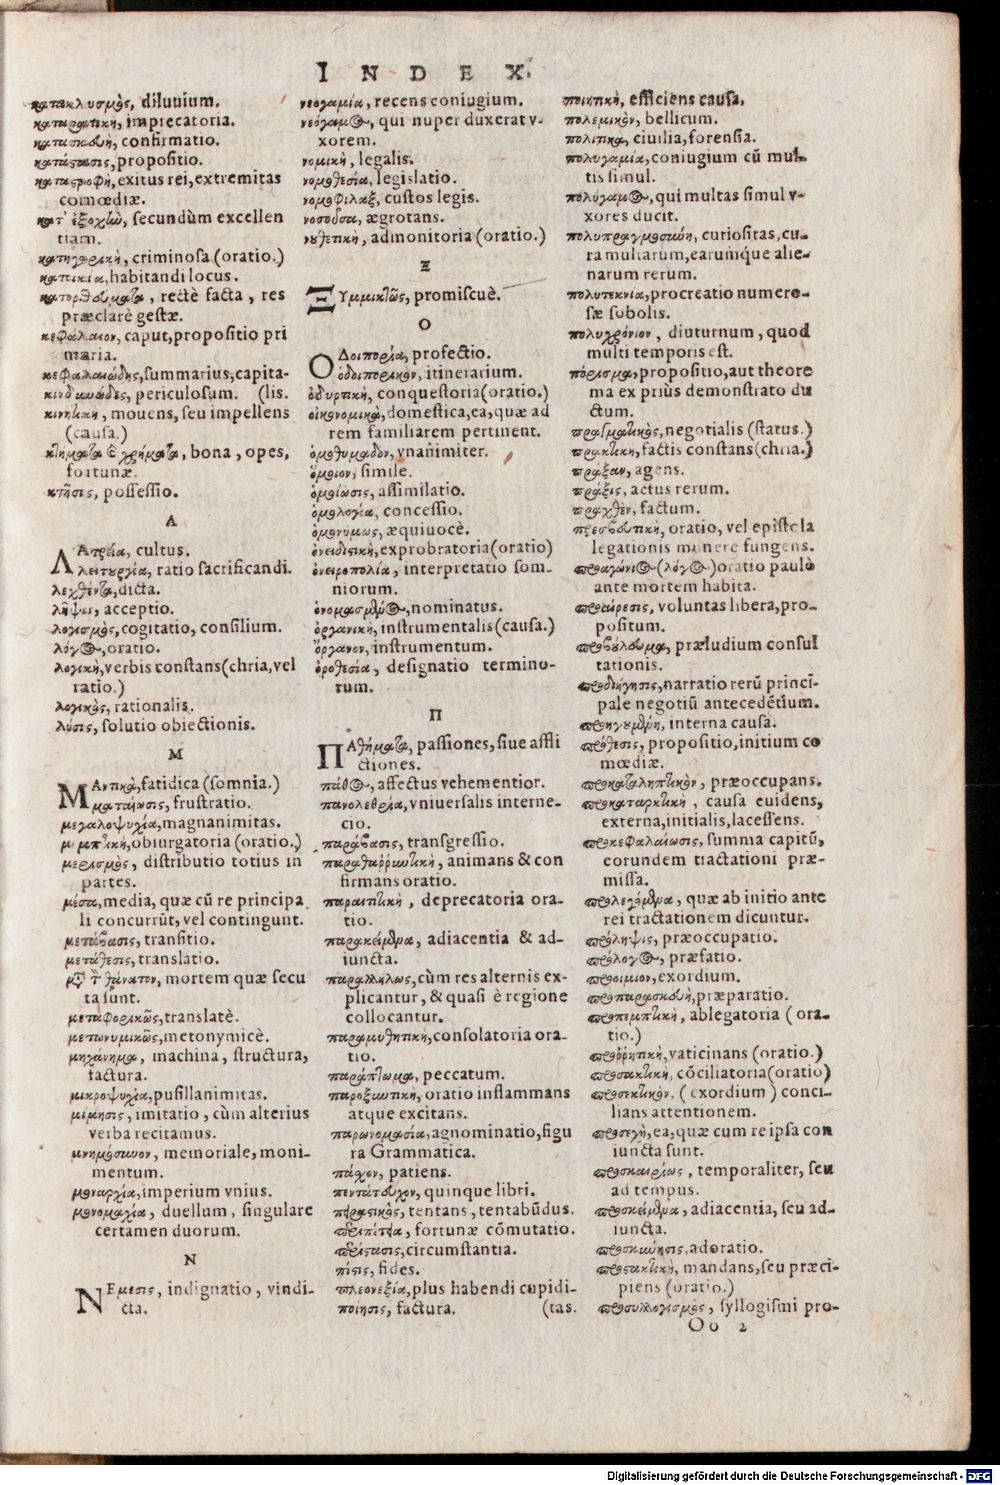 INDEX.
κατακλυσμὸς, diluuium.
καταρατικὴ, imprecatoria.
κατασκευὴ, confirmatio.
κατάστασις, propositio.
καταστροφὴ, exitus rei, extremitas
comœdiæ.
κατ' ἐξοχὴν, secundùm excellen
tiam.
κατηγορικὴ, criminosa (oratio.)
κατοικία, habitandi locus.
κατορθώματα, rectè facta, res
præclarè gestæ.
κεφάλαιον, caput, propositio pri
maria.
κεφαλαιώδης, summarius, capita-
κινδυνῶδες, periculosum. (lis.
κινητικὴ, mouens, seu impellens
(causa.)
κτήματα & χρήματα, bona, opes,
fortunæ.
κτῆσις, possessio.
Λ
ΛΑτρεία, cultus.
λειτουργία, ratio sacrificandi.
λεχθέντα, dicta.
λῆψις, acceptio.
λογισμὸς, cogitatio, consilium.
λόγος, oratio.
λογικὴ, verbis constans (chria, vel
ratio.)
λογικὸς, rationalis.
λύσις, solutio obiectionis.
Μ
ΜΑντικὰ, fatidica (somnia.)
ματαίωσις, frustratio.
μεγαλοψυχία, magnanimitas.
μεμπτικὴ, obiurgatoria (oratio.)
μερισμὸς, distributio totius in
partes.
μέσα, media, quæ cū re principa
li concurrūt, vel contingunt.
μετάβασις, transitio.
μετάθεσις, translatio.
μετὰ τὸν θάνατον, mortem quæ secu
ta sunt.
μεταφορικῶς, translatè.
μετωνυμικῶς, metonymicè.
μηχάνημα, machina, structura,
factura.
μικροψυχία, pusillanimitas.
μίμησις, imitatio, cùm alterius
verba recitamus.
μνημόσυνον, memoriale, moni-
mentum.
μοναρχία, imperium vnius.
μονομαχία, duellum, singulare
certamen duorum.
Ν
ΝΕμεσις, indignatio, vindi-
cta.
νεογαμία, recens coniugium.
νεόγαμος, qui nuper duxerat v-
xorem.
νομικὴ, legalis.
νομοθεσία, legislatio.
νομοφύλαξ, custos legis.
νοσοῦσα, ægrotans.
νουθετικὴ, admonitoria (oratio.)
Ξ
ΞΥμμικτῶς, promiscuè.
Ο
ΟΔοιπορία, profectio.
ὁδοιπορικὸν, itinerarium.
ὀδυρτικὴ, conquestoria (oratio.)
οἰκονομικὰ, domestica, ea, quæ ad
rem familiarem pertinent.
ὁμοθυμαδὸν, vnanimiter.
ὅμοιον, simile.
ὁμοίωσις, assimilatio.
ὁμολογία, concessio.
ὁμονύμως, æquiuocè.
ὀνειδιστικὴ, exprobratoria (oratio)
ὀνειροπολία, interpretatio som-
niorum.
ὀνομασμένος, nominatus.
ὀργανικὴ, instrumentalis (causa.)
ὄργανον, instrumentum.
ὁροθεσία, designatio termino-
rum.
Π
ΠΑθήματα, passiones, siue affli
ctiones.
πάθος, affectus vehementior.
πανολεθρία, vniuersalis interne-
cio.
παράβασις, transgressio.
παραθαῤῥυντικὴ, animans & con
firmans oratio.
παραιτικὴ, deprecatoria ora-
tio.
παρακείμενα, adiacentia & ad-
iuncta.
παραλλήλως, cùm res alternis ex-
plicantur, & quasi è regione
collocantur.
παραμυθητικὴ, consolatoria ora-
tio.
παράπτωμα, peccatum.
παροξυντικὴ, oratio inflammans
atque excitans.
παρωνομασία, agnominatio, figu
ra Grammatica.
πάσχον, patiens.
πεντάτευχον, quinque libri.
πειραστικὸς, tentans, tentabūdus.
περιπέτεια, fortunæ cōmutatio.
περίστασις, circumstantia.
πίστις, fides.
πλεονεξία, plus habendi cupidi-
ποίησις, factura. (tas.
ποιητικὴ, efficiens causa.
πολεμικὸν, bellicum.
πολιτικὰ, ciuilia, forensia.
πολυγαμία, coniugium cū mul-
tis simul.
πολύγαμος, qui multas simul v-
xores ducit.
πολυπραγμοσύνη, curiositas, cu-
ra multarum, earumq́ue alie-
narum rerum.
πολυτεκνία, procreatio numero-
sæ sobolis.
πολυχρόνιον, diuturnum, quod
multi temporis est.
πόρισμα, propositio, aut theore
ma ex priùs demonstrato du
ctum.
πραγματικὸς, negotialis (status.)
πρακτικὴ, factis constans (chria.)
πράξαν, agens.
πρᾶξις, actus rerum.
πραχθὲν, factum.
πρεσβευτικὴ, oratio, vel epistola
legationis munere fungens.
προαγώνιος (λόγος) oratio paulò
ante mortem habita.
προαίρεσις, voluntas libera, pro-
positum.
προβούλευμα, præludium consul
tationis.
προδιήγησις, narratio rerū princi-
pale negotiū antecedētium.
προηγουμένη, interna causa.
πρόθεσις, propositio, initium co
mœdiæ.
προκαταληπτικὸν, præoccupans.
προκαταρκτικὴ, causa euidens,
externa, initialis, lacessens.
προκεφαλαίωσις, summa capitū,
eorundem tractationi præ-
missa.
προλεγόμενα, quæ ab initio ante
rei tractationem dicuntur.
πρόληψις, præoccupatio.
πρόλογος, præfatio.
προοίμιον, exordium.
προπαρασκευὴ, præparatio.
προπεμπτικὴ, ablegatoria (ora-
tio.)
προῤῥητικὴ, vaticinans (oratio.)
προσακτικὴ, cōciliatoria (oratio)
προσεκτικὸν, (exordium) conci-
lians attentionem.
προσεχῆ, ea, quæ cum re ipsa con
iuncta sunt.
προσκαίρως, temporaliter, seu
ad tempus.
προσκείμενα, adiacentia, seu ad-
iuncta.
προσκύνησις, adoratio.
προστακτικὴ, mandans, seu præci-
piens (oratio.)
προσυλλογισμὸς, syllogismi pro-
Oo 2
Digitalisierung gefördert durch die Deutsche Forschungsgemeinschaft - DFG